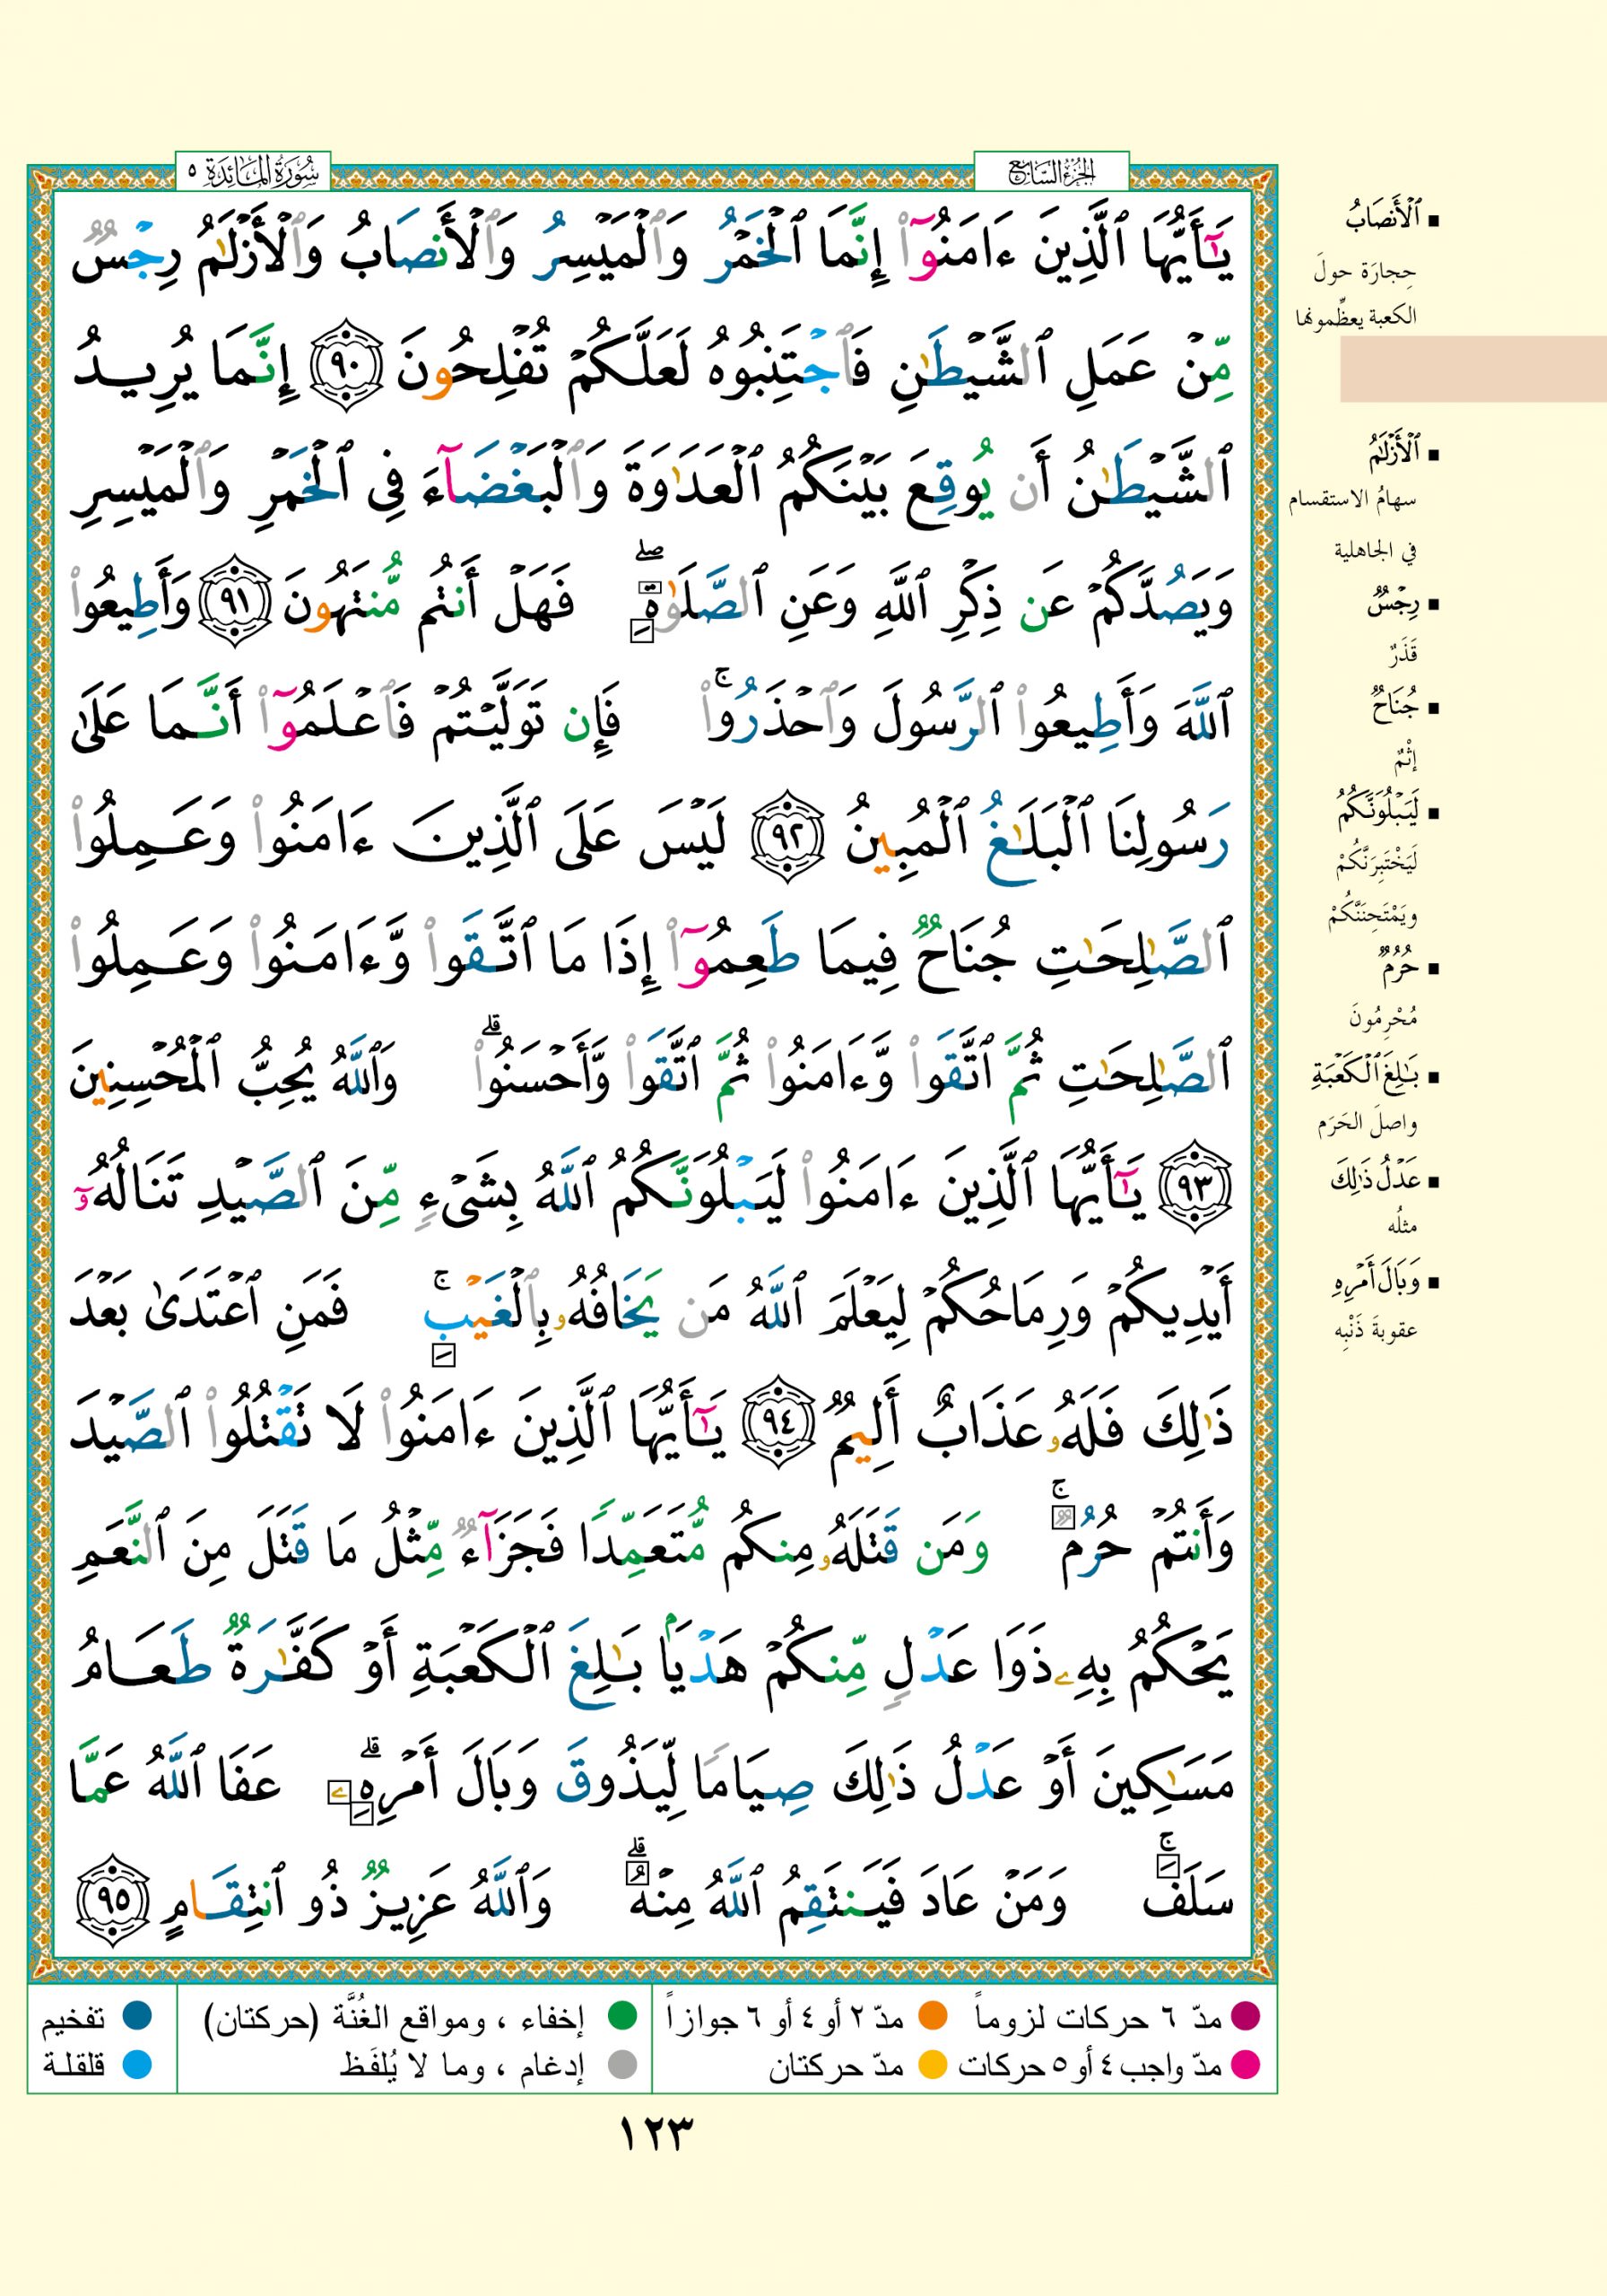 الجزء السابع
سورة المائدة ٥
يَٰٓأَيُّهَا ٱلَّذِينَ ءَامَنُوٓا۟ إِنَّمَا ٱلْخَمْرُ وَٱلْمَيْسِرُ وَٱلْأَنصَابُ وَٱلْأَزْلَٰمُ رِجْسٌ
مِّنْ عَمَلِ ٱلشَّيْطَٰنِ فَٱجْتَنِبُوهُ لَعَلَّكُمْ تُفْلِحُونَ ٩٠ إِنَّمَا يُرِيدُ
ٱلشَّيْطَٰنُ أَن يُوقِعَ بَيْنَكُمُ ٱلْعَدَٰوَةَ وَٱلْبَغْضَآءَ فِى ٱلْخَمْرِ وَٱلْمَيْسِرِ
وَيَصُدَّكُمْ عَن ذِكْرِ ٱللَّهِ وَعَنِ ٱلصَّلَوٰةِ ۖ فَهَلْ أَنتُم مُّنتَهُونَ ٩١ وَأَطِيعُوا۟
ٱللَّهَ وَأَطِيعُوا۟ ٱلرَّسُولَ وَٱحْذَرُوا۟ ۚ فَإِن تَوَلَّيْتُمْ فَٱعْلَمُوٓا۟ أَنَّمَا عَلَىٰ
رَسُولِنَا ٱلْبَلَٰغُ ٱلْمُبِينُ ٩٢ لَيْسَ عَلَى ٱلَّذِينَ ءَامَنُوا۟ وَعَمِلُوا۟
ٱلصَّٰلِحَٰتِ جُنَاحٌ فِيمَا طَعِمُوٓا۟ إِذَا مَا ٱتَّقَوا۟ وَّءَامَنُوا۟ وَعَمِلُوا۟
ٱلصَّٰلِحَٰتِ ثُمَّ ٱتَّقَوا۟ وَّءَامَنُوا۟ ثُمَّ ٱتَّقَوا۟ وَّأَحْسَنُوا۟ ۗ وَٱللَّهُ يُحِبُّ ٱلْمُحْسِنِينَ
٩٣ يَٰٓأَيُّهَا ٱلَّذِينَ ءَامَنُوا۟ لَيَبْلُوَنَّكُمُ ٱللَّهُ بِشَىْءٍ مِّنَ ٱلصَّيْدِ تَنَالُهُۥٓ
أَيْدِيكُمْ وَرِمَاحُكُمْ لِيَعْلَمَ ٱللَّهُ مَن يَخَافُهُۥ بِٱلْغَيْبِ ۚ فَمَنِ ٱعْتَدَىٰ بَعْدَ
ذَٰلِكَ فَلَهُۥ عَذَابٌ أَلِيمٌ ٩٤ يَٰٓأَيُّهَا ٱلَّذِينَ ءَامَنُوا۟ لَا تَقْتُلُوا۟ ٱلصَّيْدَ
وَأَنتُمْ حُرُمٌ ۚ وَمَن قَتَلَهُۥ مِنكُم مُّتَعَمِّدًا فَجَزَآءٌ مِّثْلُ مَا قَتَلَ مِنَ ٱلنَّعَمِ
يَحْكُمُ بِهِۦ ذَوَا عَدْلٍ مِّنكُمْ هَدْيًۢا بَٰلِغَ ٱلْكَعْبَةِ أَوْ كَفَّٰرَةٌ طَعَامُ
مَسَٰكِينَ أَوْ عَدْلُ ذَٰلِكَ صِيَامًا لِّيَذُوقَ وَبَالَ أَمْرِهِۦ ۗ عَفَا ٱللَّهُ عَمَّا
سَلَفَ ۚ وَمَنْ عَادَ فَيَنتَقِمُ ٱللَّهُ مِنْهُ ۗ وَٱللَّهُ عَزِيزٌ ذُو ٱنتِقَامٍ ٩٥
▪ ٱلْأَنصَابُ
حِجارَة حولَ
الكعبة يعظِّمونها
▪ ٱلْأَزْلَٰمُ
سهامُ الاستقسام
في الجاهلية
▪ رِجْسٌ
قَذَرٌ
▪ جُنَاحٌ
إثْمٌ
▪ لَيَبْلُوَنَّكُمُ
لَيَخْتَبِرَنَّكُمْ
ويَمْتَحِنَنَّكُمْ
▪ حُرُمٌ
مُحْرِمُونَ
▪ بَٰلِغَ ٱلْكَعْبَةِ
واصلَ الحَرَم
▪ عَدْلُ ذَٰلِكَ
مثلُه
▪ وَبَالَ أَمْرِهِ
عقوبةَ ذَنْبِه
مدّ ٦ حركات لزوماً
مدّ ٢ أو ٤ أو ٦ جوازاً
إخفاء ، ومواقع الغُنَّة (حركتان)
تفخيم
مدّ واجب ٤ أو ٥ حركات
مدّ حركتان
إدغام ، وما لا يُلفَظ
قلقلة
١٢٣